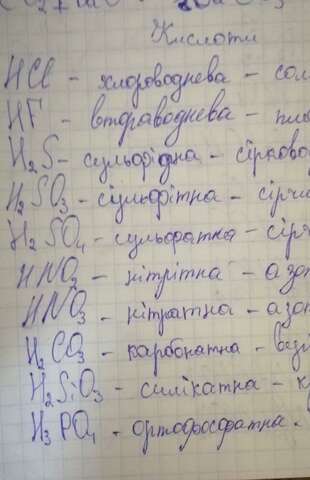 Кислоти
HCl - хлороводнева - сол
HF - втораводнева - пла
H2S - сульфідна - сірково
H2SO3 - сульфітна - сірчи
H2SO4 - сульфатна - сірч
HNO2 - нітрітна - азо
HNO3 - нітратна - азо
H2CO3 - карбонатна - вуг
H2SiO3 - силікатна - к
H3PO4 - ортофосфатна.